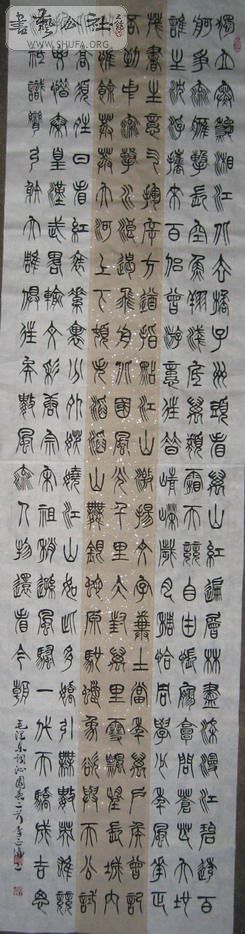 獨立寒秋湘江北去橘子洲頭看萬山紅遍層林盡染漫江碧透百
舸爭流鷹擊長空魚翔淺底萬類霜天競自由悵寥廓問蒼茫大地
誰主沉浮攜來百侶曾游憶往昔崢嶸歲月稠恰同學少年風華正
茂書生意氣揮斥方遒指點江山激揚文字糞土當年萬戶侯曾記
否到中流擊水浪遏飛舟北國風光千里冰封萬里雪飄望長城內
外惟餘莽莽大河上下頓失滔滔山舞銀蛇原馳蠟象欲與天公試
比高須晴日看紅裝素裹分外妖嬈江山如此多嬌引無數英雄競
折腰惜秦皇漢武略輸文采唐宗宋祖稍遜風騷一代天驕成吉思
汗只識彎弓射大雕俱往矣數風流人物還看今朝
毛澤東詞沁園春二首
書藝公社
WWW.SHUFA.ORG